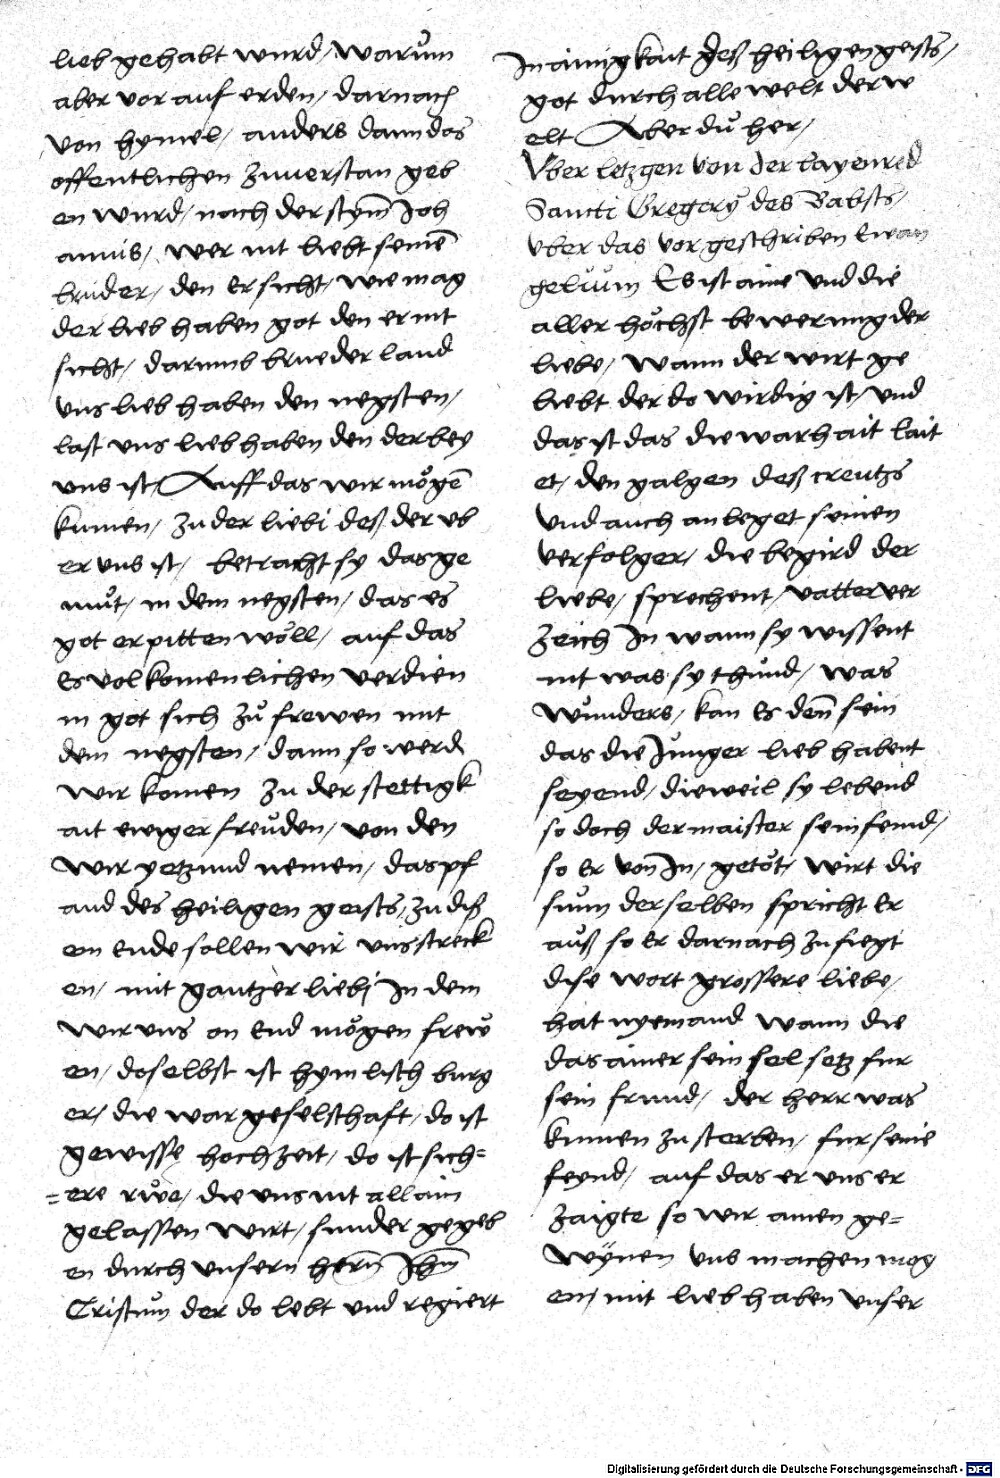 lieb gehabt wurd / warům
aber vor auf erden / darnach
von hymel / anders dann das
offentlichen zuuerstan geb
en wurd / nach der stym̄ Joh
annis / wer nit liebt seinē
brüder / den er sicht / wie mag
der lieb haben got den er nit
sicht / darumb brueder land
vns lieb haben den negsten /
last vns lieb haben den der bey
vns ist / Auff das wir mögē
kumen / zu der liebi deß der ob
er vns ist / betracht sy das ge
můt / in dem negsten / das es
got erpitten wöll / auf das
Es volkomenlichen verdien
in got sich zů frewen mit
dem negsten / dann so werd
wir komen zu der stettigk
ait ewiger freůden / von den
wir yetzund nemen / das pf
and des heiligen geists / zu diß
en ende sollen wir vns streck
en / mit gantzer liebi In dem
wir vns on End mögen frew
en / doselbst ist hymlisch burg
er / die war geselschaft / do ist
gewisse hochzeit / do ist sich=
=ere růe / die vns nit allain
gelassen wirt / sunder gegeb
en durch vnsern hern̄ Jhm̄
Cristum der do lebt vnd regiert
In ainigkait deß heiligen geists /
got durch alle welt der w
elt Aber dů her /
Vber letzgen von der Layenred
Sancti Gregory des Babsts /
vber das vorgeschriben Ewan
geliům Es ist aine vnd die
aller höchst bewerung der
liebe / wann der wirt ge
liebt der do wirdig ist / vnd
das ist das die warhait lait
et / den galgen deß creutzs
vnd auch anleget seinen
verfolger / die begird der
liebe / sprechent / vatter ver
zeich In wann sy wissent
nit was sy thůnd / was
wůnders / kan Es den̄ sein
das die Junger lieb habent
seyend / dieweil sy lebend
so doch der maister sein feind /
so er von In / getöt / wirt die
sum derselben spricht Er
auß so Er darnach zufiegt
dise wort grossere liebe /
hat nyemand wann die
das ainer sein sel setz fur
sein frund / der herr was
kumen zu sterben / fur seine
feynd / auf das er vns er
zaigte so wir ainen ge=
wynen vns machen mog
en / mit lieb haben vnser
Digitalisierung gefördert durch die Deutsche Forschungsgemeinschaft - DFG